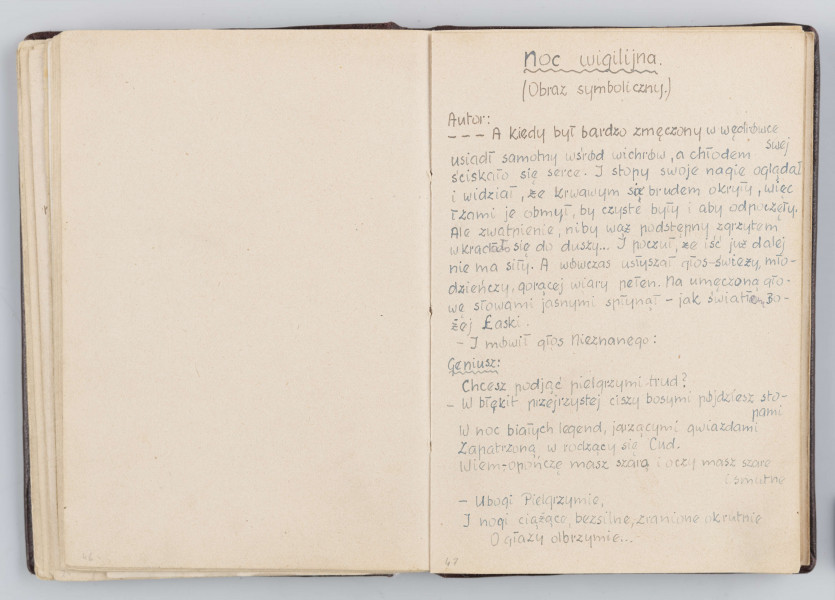 noc wigilijna.
(Obraz symboliczny.)
Autor:
– – – A kiedy był bardzo zmęczony w wędrówce
swej
usiadł samotny wśród wichrów, a chłodem
ściskało się serce. I stopy swoje nagie oglądał
i widział, że krwawym się brudem okryły, więc
łzami je obmył, by czyste były i aby odpoczęły.
Ale zwątpienie, niby wąż podstępny zgrzytem
wkradało się do duszy... I poczuł, że iść już dalej
nie ma siły. A wówczas usłyszał głos–świeży, mło-
dzieńczy, gorącej wiary pełen. Na umęczoną gło-
wę słowami jasnymi spłynął – jak światłem Bo-
żej Łaski.
– I mówił głos Nieznanego:
Geniusz:
Chcesz podjąć pielgrzymi trud?
– W błękit przejrzystej ciszy bosymi pójdziesz sto-
pami
W noc białych legend, jarzącymi gwiazdami
Zapatrzoną w rodzący się Cud.
Wiem–opończę masz szarą i oczy masz szare
i smutne
– Ubogi Pielgrzymie,
I nogi ciążące, bezsilne, zranione okrutnie
O głazy olbrzymie...
46
47